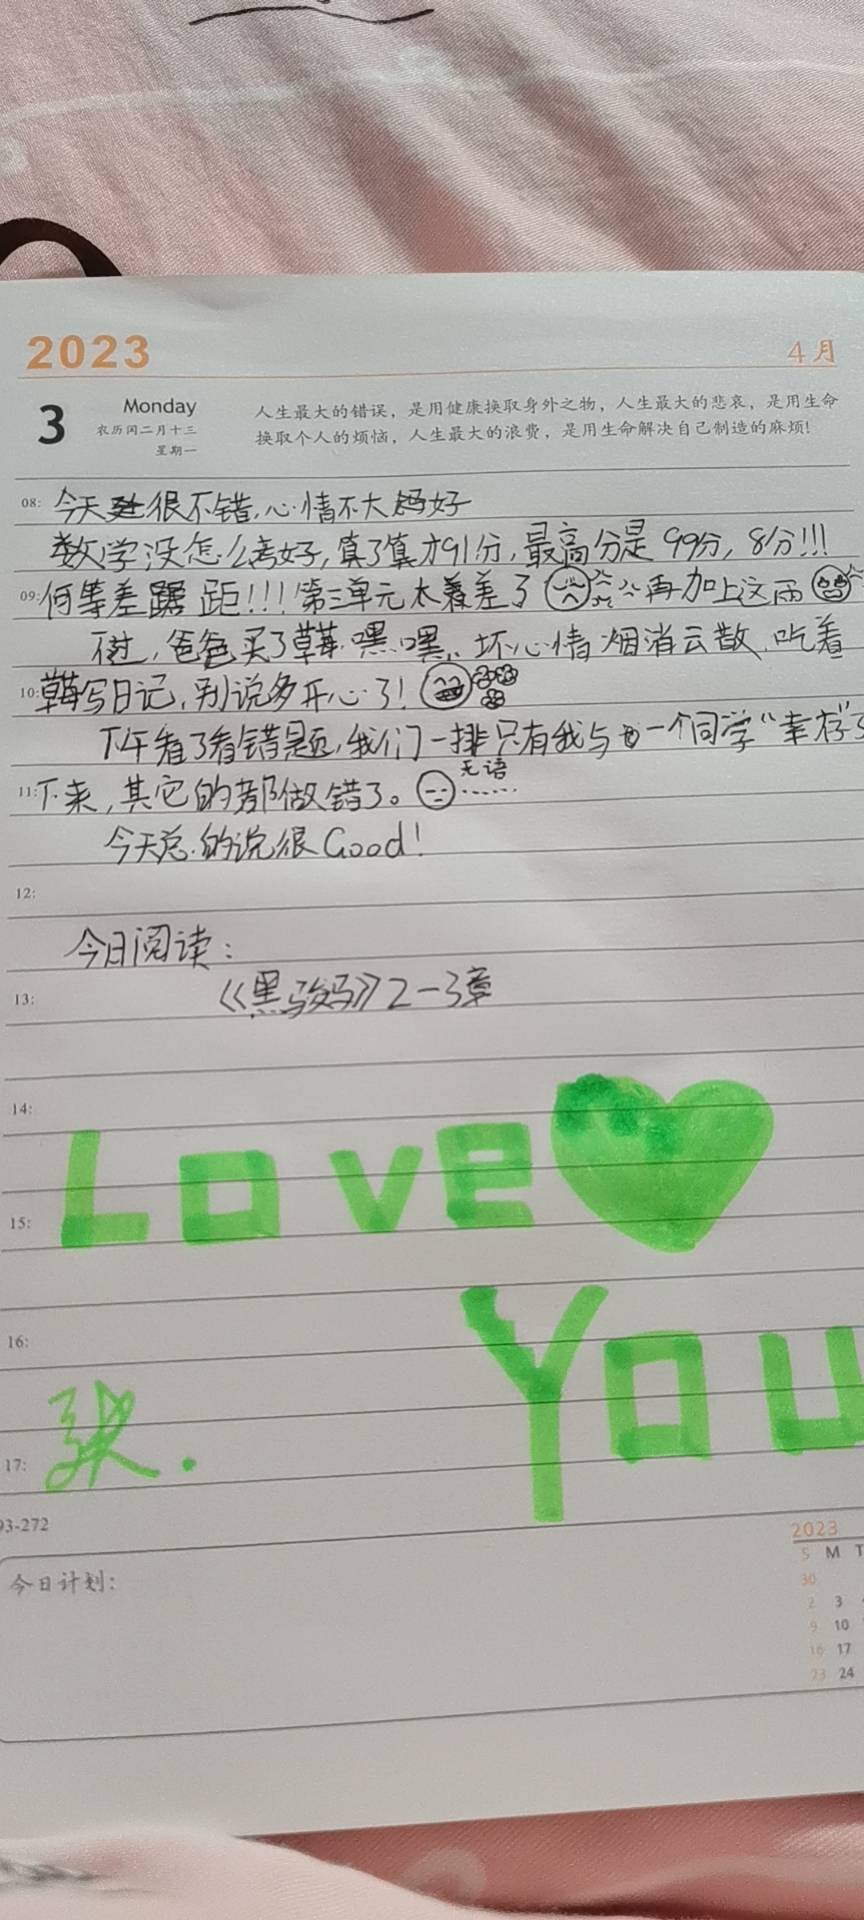 2023
4月
3
Monday
农历闰二月十三
星期一
人生最大的错误，是用健康换取身外之物，人生最大的悲哀，是用生命
换取个人的烦恼，人生最大的浪费，是用生命解决自己制造的麻烦！
08: 今天很不错,心情不大好
数学没怎么考好,算了算才91分,最高分是99分,8分!!!
09: 何等差距!!!第三单元太差了 再加上这雨
不过,爸爸买了草莓.嘿嘿、坏心情烟消云散,吃着
10: 草莓写日记,别说多开心了!
下午看了看错题,我们一排只有我与一个同学“幸存”了
无语
11: 下来,其它的都做错了。......
今天总的说很Good!
12:
今日阅读:
13:
《黑骏马》2-3章
14:
Love
15:
You
16:
张.
17:
93-272
今日计划:
2023
S M T
30
2 3
9 10
16 17
23 24